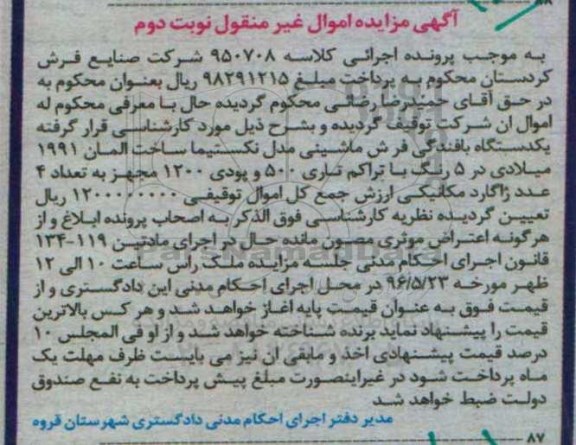 آگهی مزایده اموال غیر منقول نوبت دوم
به موجب پرونده اجرائی کلاسه ۹۵۰۷۰۸ شرکت صنایع فرش
کردستان محکوم به پرداخت مبلغ ۹۸۲۹۱۲۱۵ ریال بعنوان محکوم به
در حق آقای حمیدرضا رضائی محکوم گردیده حال با معرفی محکوم له
اموال ان شرکت توقیف گردیده و بشرح ذیل مورد کارشناسی قرار گرفته
یکدستگاه بافندگی فرش ماشینی مدل نکستیما ساخت المان ۱۹۹۱
میلادی در ۵ رنگ با تراکم تاری ۵۰۰ و پودی ۱۲۰۰ مجهز به تعداد ۴
عدد ژاگارد مکانیکی ارزش جمع کل اموال توقیفی ریال
تعیین گردیده نظریه کارشناسی فوق الذکر به اصحاب پرونده ابلاغ و از
هرگونه اعتراض موثری مصون مانده حال در اجرای مادتین ۱۱۹-۱۳۴
قانون اجرای احکام مدنی جلسه مزایده ملک راس ساعت ۱۰ الی ۱۲
ظهر مورخه ۹۶/۵/۲۳ در محل اجرای احکام مدنی این دادگستری و از
قیمت فوق به عنوان قیمت پایه اغاز خواهد شد و هر کس بالاترین
قیمت را پیشنهاد نماید برنده شناخته خواهد شد و از او فی المجلس ۱۰
درصد قیمت پیشنهادی اخذ و مابقی ان نیز می بایست ظرف مهلت یک
ماه پرداخت شود در غیراینصورت مبلغ پیش پرداخت به نفع صندوق
دولت ضبط خواهد شد
مدیر دفتر اجرای احکام مدنی دادگستری شهرستان قروه
۸۷